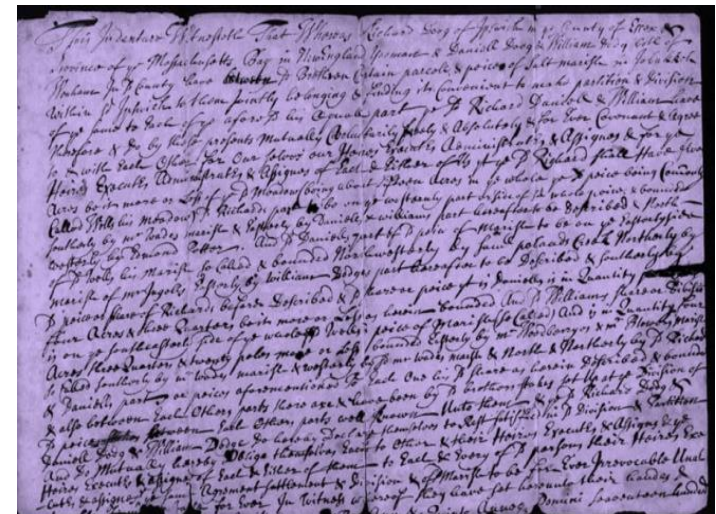 This Indenture Witnesseth That Whereas Richard Dodg of Ipswich in ye County of Essex &
Province of ye Massachusetts Bay in New England Yeoman & Daniell Dodg & William Dodg both of
Wenham In County have Brethren Certain parcells & peices of Salt marish in
Within Ipswich to them Joyntly belonging & finding its Convenient to make partition & Division
of ye Same to Each of ye aforesd his Equall part ye sd Richard Daniell & William have
therefore & do by these presents Mutually Voluntarily freely & Absolutely & for Ever Covenant & Agree
to & with Each Other for Our Selves our Heires Executrs Administratrs & Assignes & for ye
Heires Executrs Administratrs & Assignes of Each & Either of Us yt ye sd Richard Shall Have
Acres be it more or Less of sd Meadow being about fifteen Acres in ye whole ye peice being Comonly
Called Wells his Meadow sd Richards part to be on ye westerly part or Side of ye whole peice & bounded
Southerly by mr Wades marish & Easterly by Daniells & Williams part hereafter to be Described & North
westerly by Edmond Potter And sd Daniells part of sd of Marish to be on ye
of sd Wells his Marish so Caled & bounded Northwesterly by Creek Northerly by
marish of mr Easterly by William Dodges part hereafter to be Described & Southerly by
sd peice or Share of Richards before Described & sd share or peice yt is Daniells is in Quantity
four Acres & three Quarters be it more or Less as herein bounded And sd Williams Share or
is on ye Southeasterly Side of ye whole of Wells peice of Marish (so Caled) And is in Quantity four
Acres three Quarters & twenty poles more or Less bounded Easterly by mr & mr marish
so Called Southerly by mr Wades marish & westerly by sd mr Wades marish & North & Northerly by sd Richard
& Daniells part or peices aforementioned to Each One his sd Share as herein Described & bounded
& also between Each Others parts there are & have been by sd brothers Stakes Set that ye Division of
sd peices between Each Others parts well Known Unto them & ye sd Richard Dodg &
Daniell Dodg & William Dodge do hereby Declare themselves to Rest Satisfied in sd Division & Partition
And do Mutually hereby Oblige themselves Each to Other & their Heires Executrs & Assignes & ye
Heires Executrs & assignes of Each & Either of them to Each & Every of sd persons their Heires Exe
cutrs & assignes yt Same Agreement Settlement & Division of Marish to be for Ever Irrevocable
for Ever In Witness whereof they have Set hereunto their hands &
Annoq Domini Seventeen hundred